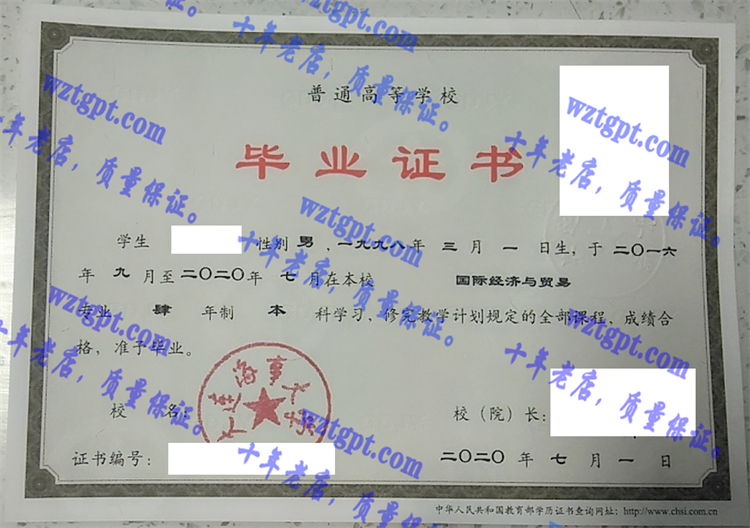 普通高等学校
毕业证书
学生 性别 男，一九九八年 三 月 一 日生，于二〇一六
年 九 月至二〇二〇年 七 月在本校 国际经济与贸易
专业 肆 年制 本 科学习，修完教学计划规定的全部课程，成绩合
格，准予毕业。
大连海事大学
校 名： 校（院）长：
证书编号： 二〇二〇 年 七 月 一 日
中华人民共和国教育部学历证书查询网址：http://www.chsi.com.cn
wzgpt.com
十年老店，质量保证。
wztgpt.com
十年老店，质量保证。
wztgpt.com
十年老店，质量保证。
wztgpt.com
十年老店，质量保证。
wztgpt.com
十年老店，质量保证。
wztgpt.com
十年老店，质量保证。
wztgpt.com
十年老店，质量保证。